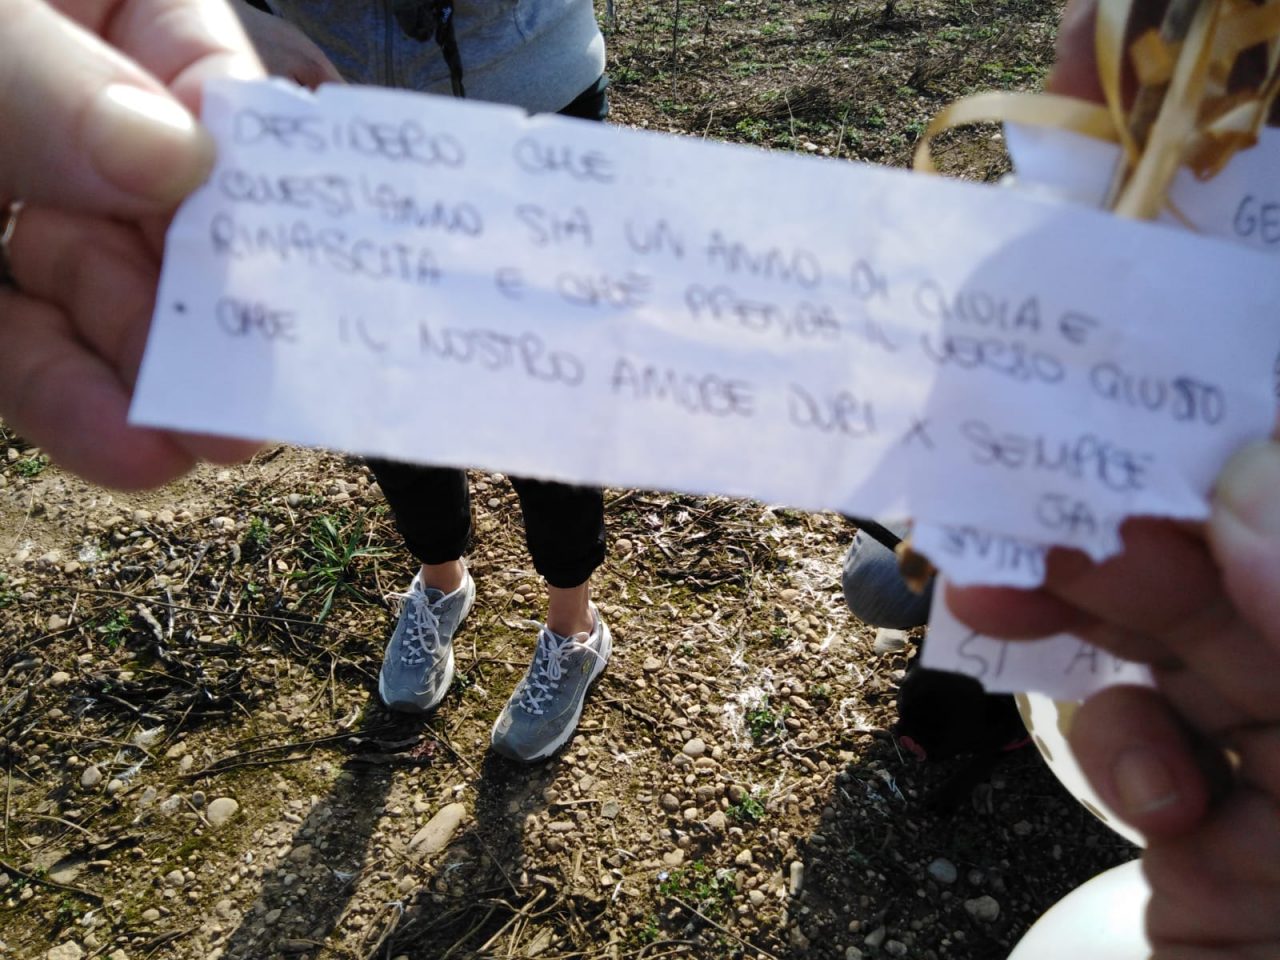 DESIDERO CHE...
QUEST'ANNO SIA UN ANNO DI GIOIA E
RINASCITA E CHE PRENDA IL VERSO GIUSTO
• CHE IL NOSTRO AMORE DURI X SEMPRE
GE
SI